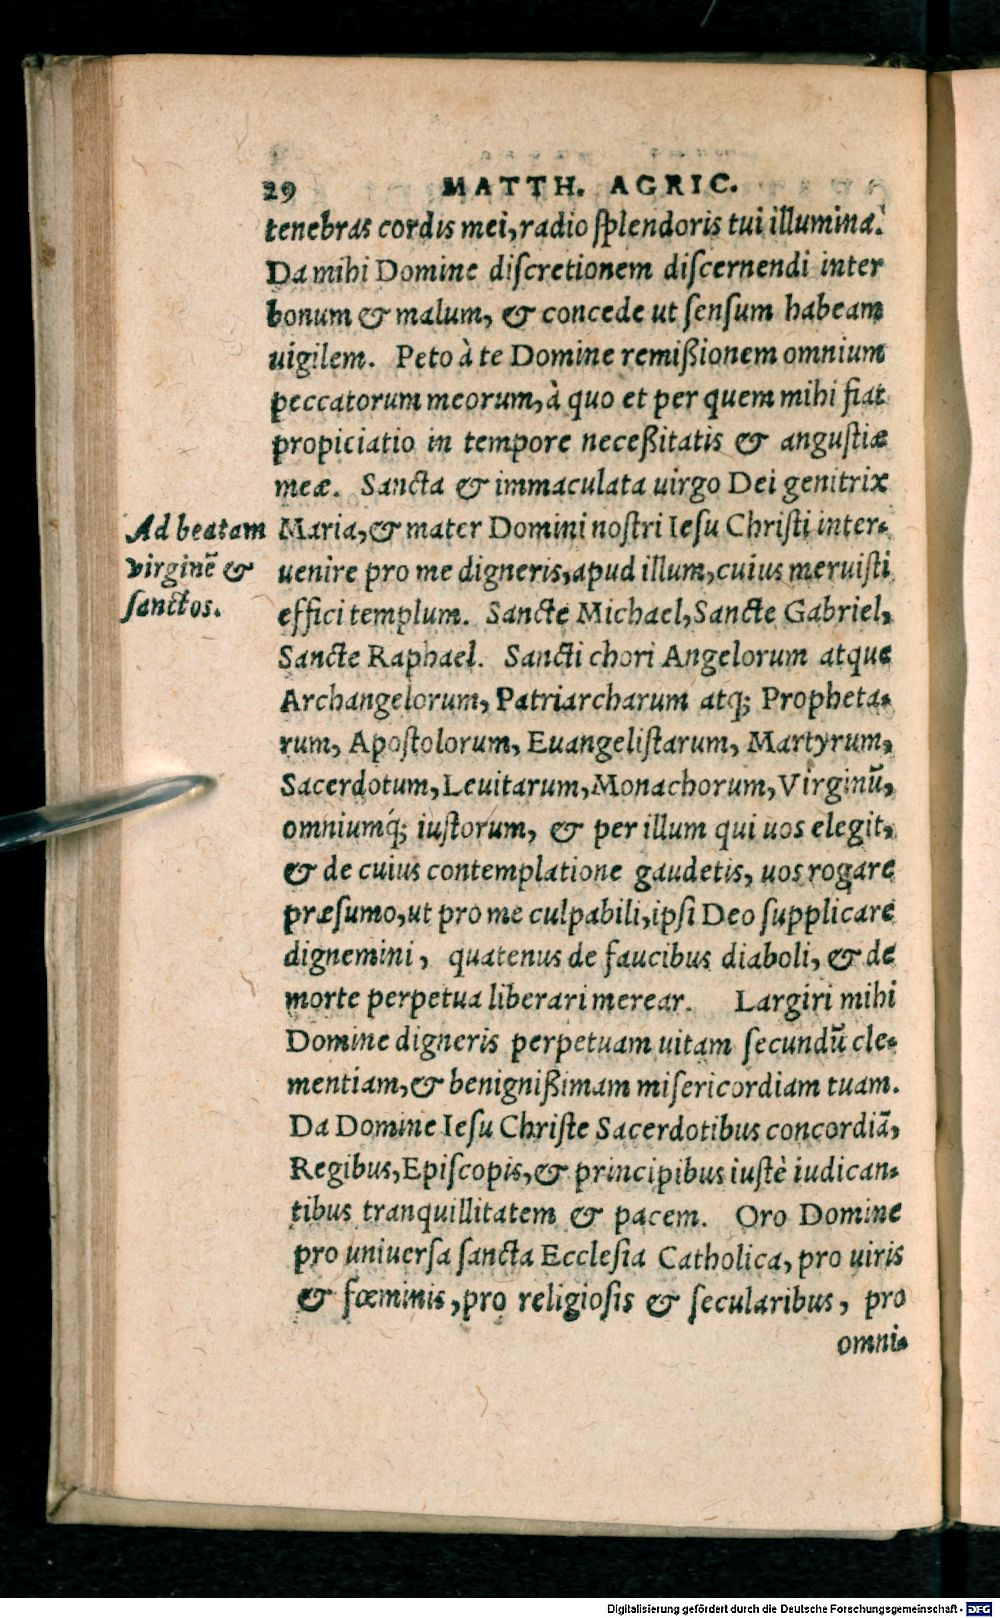 29 MATTH. AGRIC.
tenebras cordis mei, radio ſplendoris tui illumina.
Da mihi Domine diſcretionem diſcernendi inter
bonum & malum, & concede ut ſenſum habeam
uigilem. Peto à te Domine remißionem omnium
peccatorum meorum, à quo et per quem mihi fiat
propiciatio in tempore neceßitatis & anguſtiæ
meæ. Sancta & immaculata uirgo Dei genitrix
Ad beatam
virginẽ &
ſanctos.
Maria, & mater Domini noſtri Ieſu Chriſti inter-
uenire pro me digneris, apud illum, cuius meruiſti
effici templum. Sancte Michael, Sancte Gabriel,
Sancte Raphael. Sancti chori Angelorum atque
Archangelorum, Patriarcharum atq; Propheta-
rum, Apoſtolorum, Euangeliſtarum, Martyrum,
Sacerdotum, Leuitarum, Monachorum, Virginũ,
omniumq́; iuſtorum, & per illum qui uos elegit,
& de cuius contemplatione gaudetis, uos rogare
præſumo, ut pro me culpabili, ipſi Deo ſupplicare
dignemini, quatenus de faucibus diaboli, & de
morte perpetua liberari merear. Largiri mihi
Domine digneris perpetuam uitam ſecundũ cle-
mentiam, & benignißimam miſericordiam tuam.
Da Domine Ieſu Chriſte Sacerdotibus concordiã,
Regibus, Epiſcopis, & principibus iuſtè iudican-
tibus tranquillitatem & pacem. Oro Domine
pro uniuerſa ſancta Eccleſia Catholica, pro uiris
& fœminis, pro religioſis & ſecularibus, pro
omni-
Digitalisierung gefördert durch die Deutsche Forschungsgemeinschaft - DFG